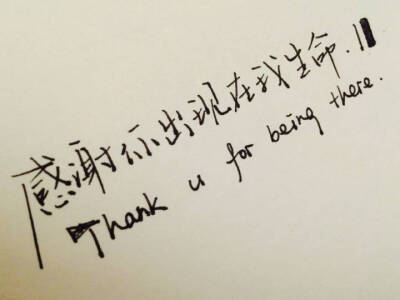 感谢你出现在我生命.!!
Thank u for being there.